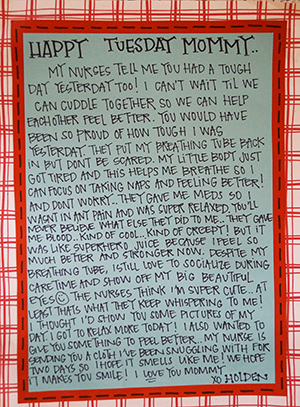 HAPPY TUESDAY MOMMY..
MY NURSES TELL ME YOU HAD A TOUGH
DAY YESTERDAY TOO! I CAN'T WAIT TIL WE
CAN CUDDLE TOGETHER SO WE CAN HELP
EACHOTHER FEEL BETTER. YOU WOULD HAVE
BEEN SO PROUD OF HOW TOUGH I WAS
YESTERDAY THEY PUT MY BREATHING TUBE BACK
IN BUT DONT BE SCARED. MY LITTLE BODY JUST
GOT TIRED AND THIS HELPS ME BREATHE SO I
CAN FOCUS ON TAKING NAPS AND FEELING BETTER!
AND DONT WORRY.. THEY GAVE ME MEDS SO I
WASNT IN ANY PAIN AND WAS SUPER RELAXED. YOU'LL
NEVER BELIEVE WHAT ELSE THEY DID TO ME.. THEY GAVE
ME BLOOD.. KIND OF COOL.. KIND OF CREEPY! BUT IT
WAS LIKE SUPERHERO JUICE BECAUSE I FEEL SO
MUCH BETTER AND STRONGER NOW. DESPITE MY
BREATHING TUBE, I STILL LOVE TO SOCIALIZE DURING
CARETIME AND SHOW OFF MY BIG BEAUTIFUL
EYES ☺ THE NURSES THINK I'M SUPER CUTE.. AT
LEAST THATS WHAT THEY KEEP WHISPERING TO ME!
I THOUGHT I'D SHOW YOU SOME PICTURES OF MY
DAY. I GOT TO RELAX MORE TODAY! I ALSO WANTED TO
GIVE YOU SOMETHING TO FEEL BETTER... MY NURSE IS
SENDING YOU A CLOTH I'VE BEEN SNUGGLING WITH FOR
TWO DAYS SO I HOPE IT SMELLS LIKE ME! WE HOPE
IT MAKES YOU SMILE! I LOVE YOU MOMMY
XO HOLDEN